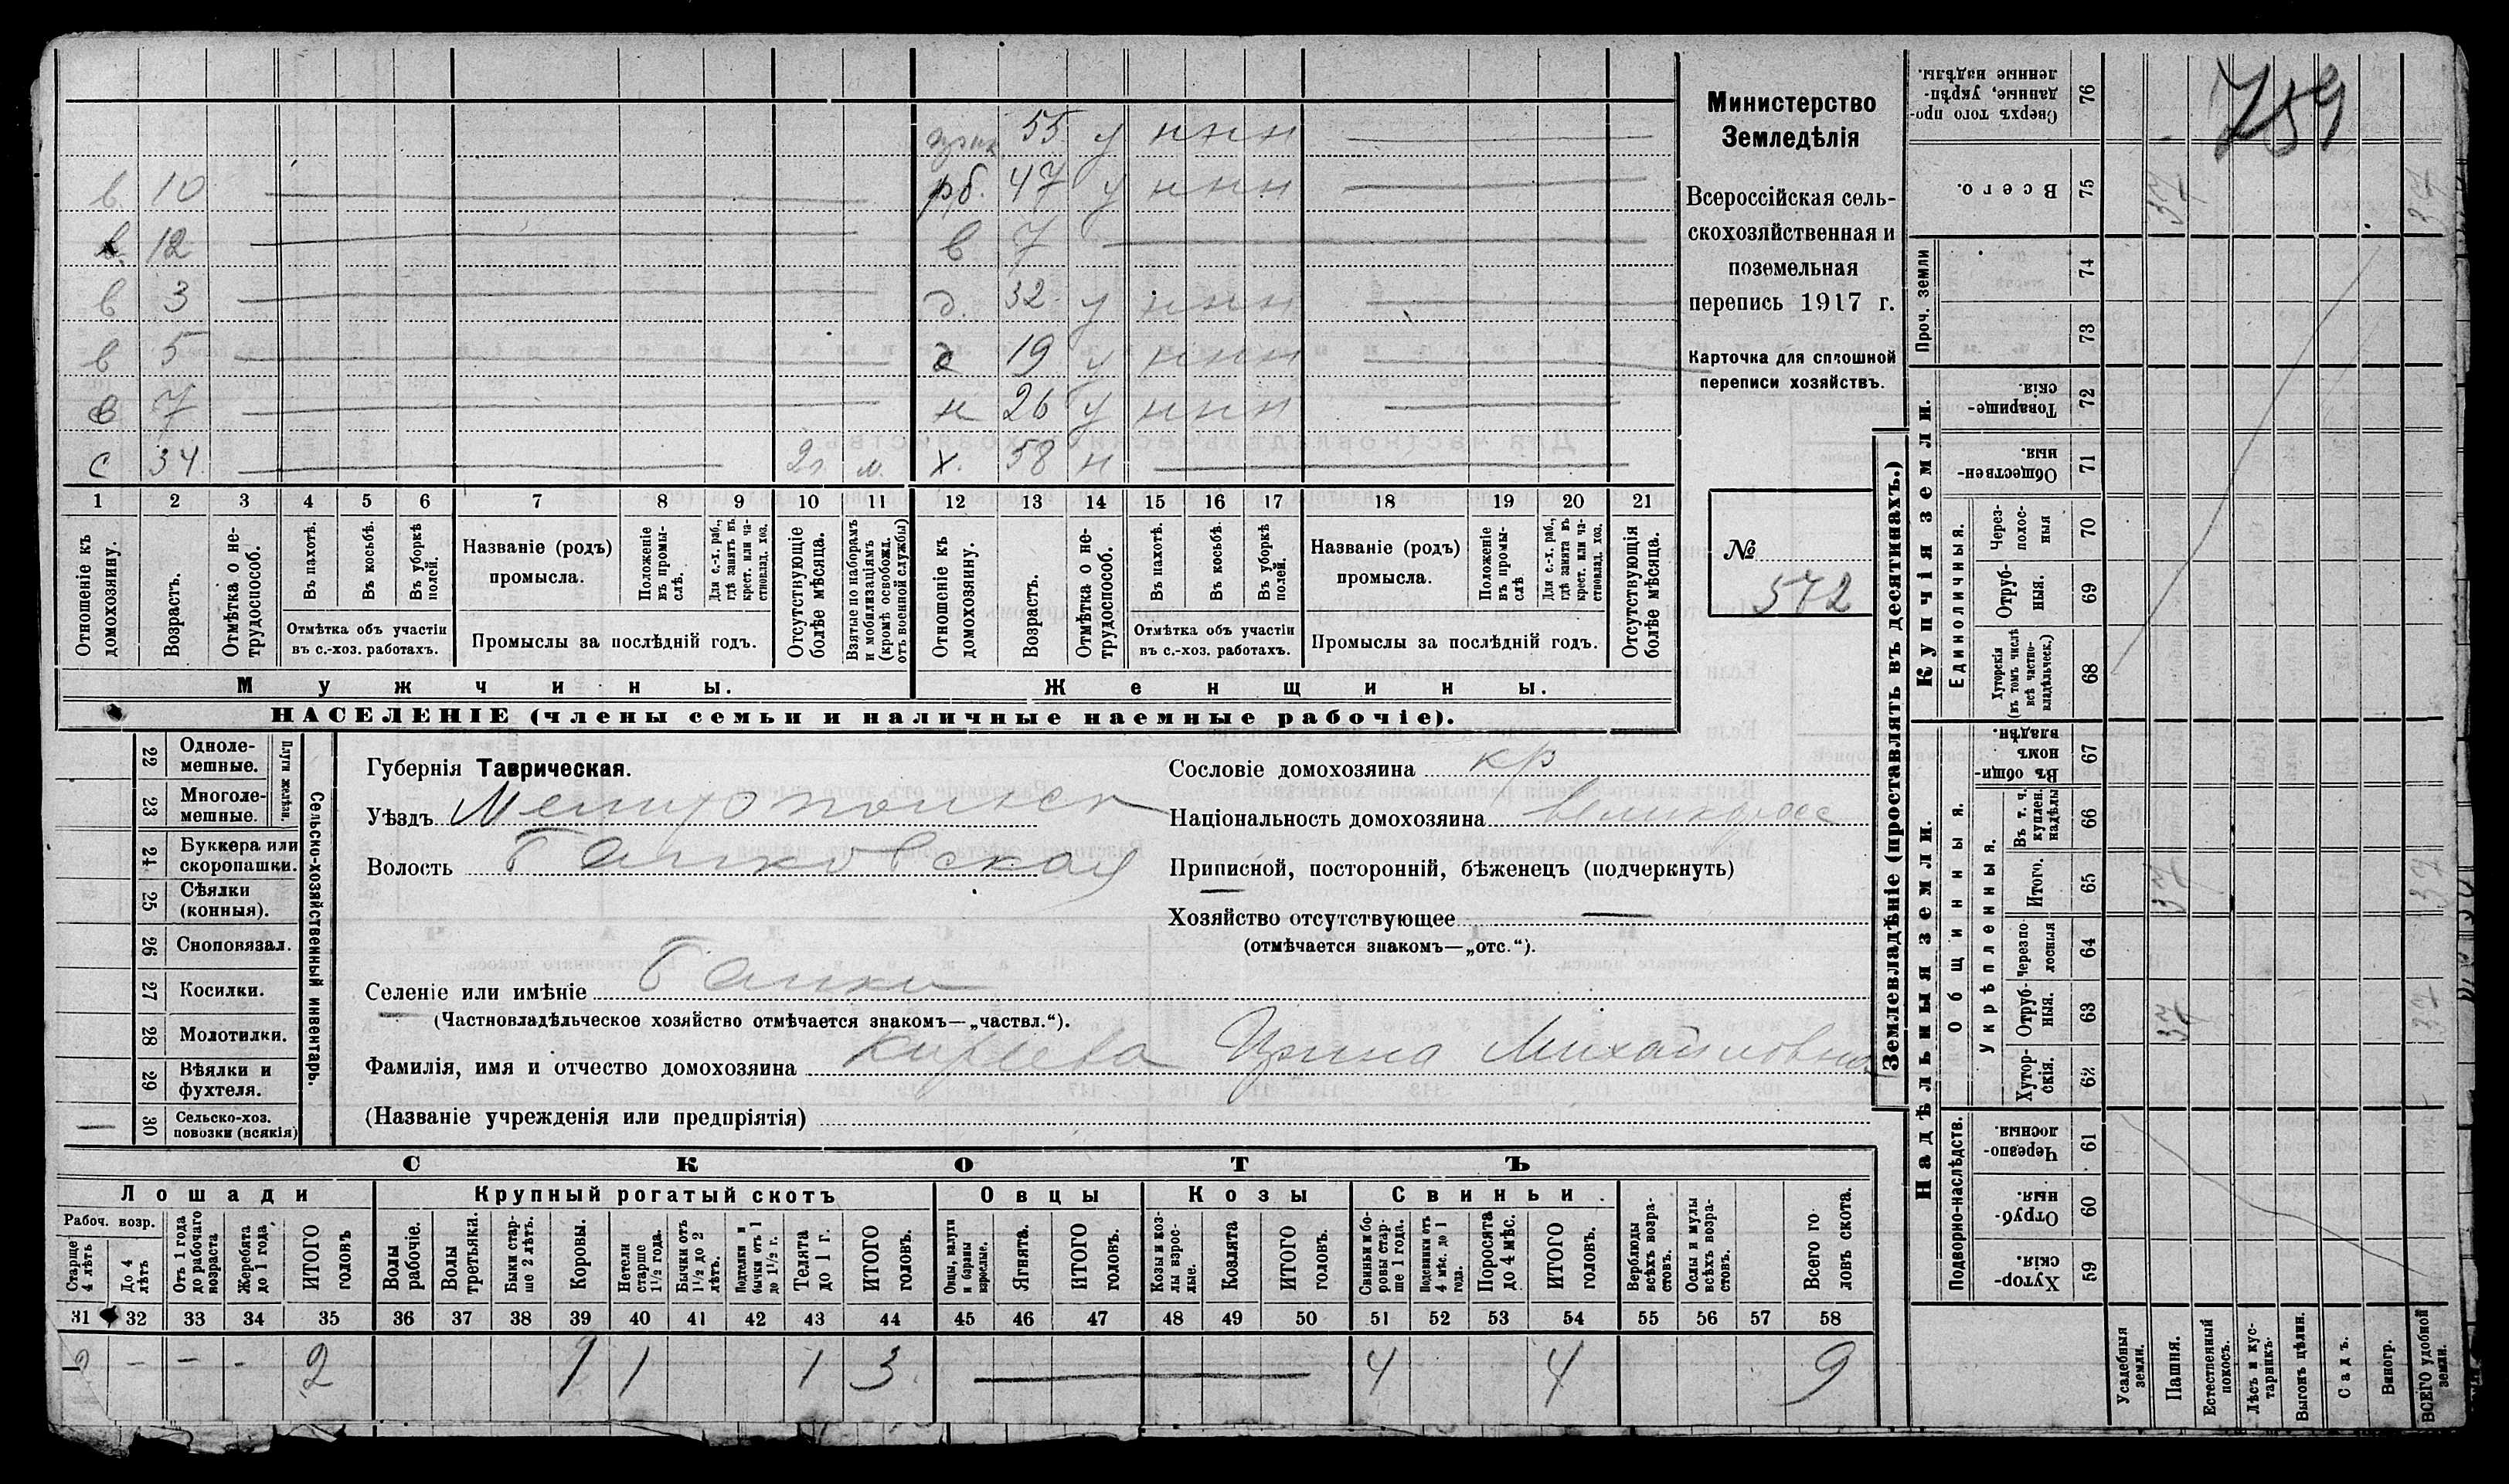 759
Министерство
Земледѣлія
Всероссійская сель-
скохозяйственная и
поземельная
перепись 1917 г.
Карточка для сплошной
переписи хозяйствъ.
№
572
55 у н н н
в. 10 рб. 47 у н н н
в. 12 в 7
в 3 д. 32 у н н н
в 5 19 у н н н
в 7 н 26 у н н н
с 34 м. х. 58 н
1 2 3 4 5 6 7 8 9 10 11 12 13 14 15 16 17 18 19 20 21
Отношеніе къ домохозяину.
Возрастъ.
Отмѣтка о не-трудоспособ.
Въ пахотѣ.
Въ косьбѣ.
Въ уборкѣ полей.
Отмѣтка объ участіи
въ с.-хоз. работахъ.
Названіе (родъ)
промысла.
Положеніе въ промы-слѣ.
Для с.-х. раб., гдѣ занятъ въ крест. или ча-стновлад. хоз.
Промыслы за послѣдній годъ.
Отсутствующіе болѣе мѣсяца.
Взятые по наборамъ и мобилизаціямъ (кромѣ освобожд. отъ военной службы)
Отношеніе къ домохозяину.
Возрастъ.
Отмѣтка о не-трудоспособ.
Въ пахотѣ.
Въ косьбѣ.
Въ уборкѣ полей.
Отмѣтка объ участіи
въ с.-хоз. работахъ.
Названіе (родъ)
промысла.
Положеніе въ промы-слѣ
Для с.-х. раб., гдѣ занята въ крест. или ча-стновлад. хоз.
Промыслы за послѣдній годъ.
Отсутствующія болѣе мѣсяца.
Мужчины.
Женщины.
НАСЕЛЕНІЕ (члены семьи и наличные наемные рабочіе).
Сельско-хозяйственный инвентарь.
Плуги желѣзн.
22 Одноле-мешные.
23 Многоле-мешные.
24 Буккера или скоропашки.
25 Сѣялки (конныя).
26 Сноповязал.
27 Косилки.
28 Молотилки.
29 Вѣялки и фухтеля.
30 Сельско-хоз. повозки (всякія)
Губернія Таврическая.
Уѣздъ Мелитопольск
Волость Балковская
Сословіе домохозяина кр
Національность домохозяина великорос
Приписной, посторонній, бѣженецъ (подчеркнуть)
Хозяйство отсутствующее —
(отмѣчается знакомъ—„отс.“).
Селеніе или имѣніе Балки
(Частновладѣльческое хозяйство отмѣчается знакомъ—„частвл.“).
Фамилія, имя и отчество домохозяина Кирѣева Ирина Михайловна
(Названіе учрежденія или предпріятія)
СКОТЪ
Лошади Крупный рогатый скотъ Овцы Козы Свиньи
Рабоч. возр.
Старше 4 лѣтъ
До 4 лѣтъ
Отъ 1 года до рабочаго возраста
Жеребята до 1 года
ИТОГО головъ
Волы рабочіе.
Волы третьяки.
Быки стар-ше 2 лѣтъ.
Коровы.
Нетели старше 1½ года.
Бычки отъ 1½ до 2 лѣтъ.
Подтелки и бычки отъ 1 до 1½ г.
Телята до 1 г.
ИТОГО головъ.
Овцы, валухи и бараны взрослые.
Ягнята.
ИТОГО головъ.
Козы и коз-лы взрос-лые.
Козлята
ИТОГО головъ.
Свиньи и бо-ровы стар-ше 1 года.
Подсвинки отъ 4 мѣс. до 1 года.
Поросята до 4 мѣс.
ИТОГО головъ.
Верблюды всѣхъ возра-стовъ.
Ослы и мулы всѣхъ возра-стовъ.
Всего го-ловъ скота.
31 32 33 34 35 36 37 38 39 40 41 42 43 44 45 46 47 48 49 50 51 52 53 54 55 56 57 58
2 – – – 2 1 1 1 3 4 4 9
Землевладѣніе (проставлять въ десятинахъ.)
Надѣльныя земли.
Купчія земли.
Проч. земли
Подворно-наслѣдств.
Общинныя.
Укрѣпленныя.
Единоличныя.
Сверхъ того про-данные, укрѣп-ленные надѣлы. 76
Всего. 75 37 37
74
73
Товарище-скія. 72
Обществен-ныя. 71
Через-полос-ныя 70
Отруб-ныя. 69
Хуторскія (въ томъ числѣ всѣ частно-владѣльческ.) 68
Въ общин-номъ владѣн. 67
Въ т. ч. куплен. надѣлы 66
Итого. 65 37 37
Черезпо-лосныя 64
Отруб-ныя. 63 37 37
Хутор-скія. 62
Черезпо-лосныя. 61
Отруб-ныя. 60
Хутор-скія. 59
Усадебныя земли.
Пашня.
Естественный покосъ.
Лѣсъ и кус-тарникъ.
Выгонъ цѣлин.
Садъ.
Виногр.
ВСЕГО удобной земли.